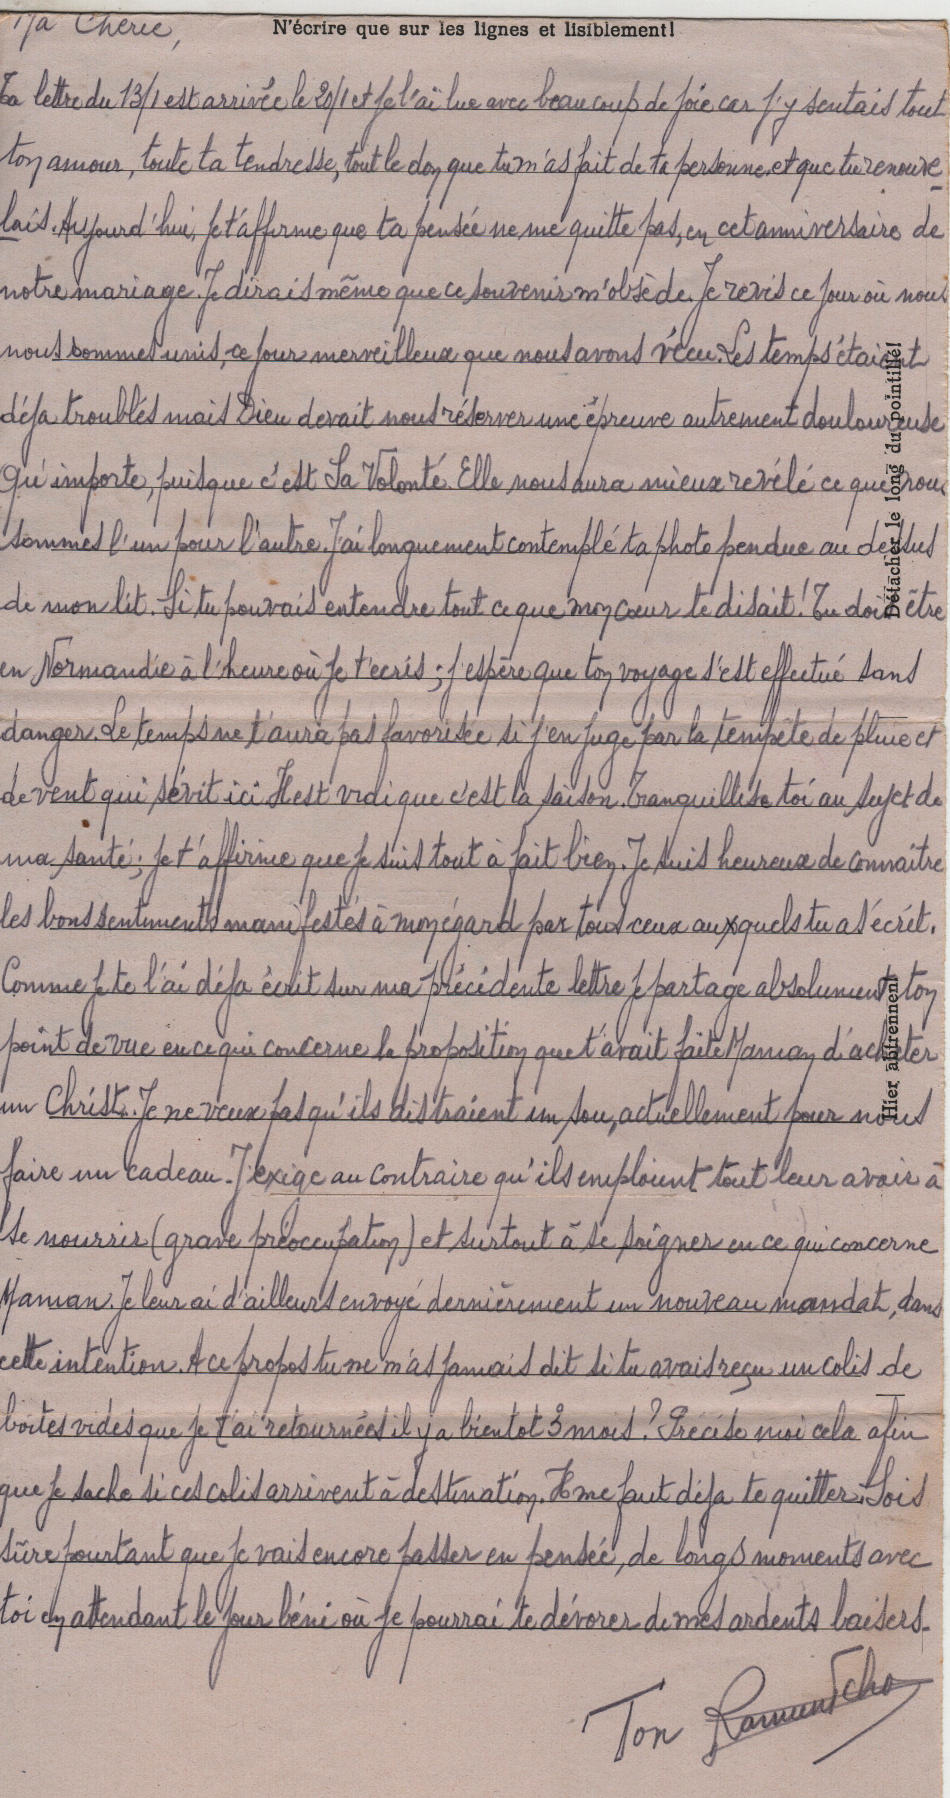 Ma Chérie,
N'écrire que sur les lignes et lisiblement!
Ta lettre du 13/1 est arrivée le 20/1 et je l'ai lue avec beaucoup de joie car j'y sentais tout
ton amour, toute ta tendresse, tout le don que tu m'as fait de ta personne, et que tu renouve-
lais. Aujourd'hui, je t'affirme que ta pensée ne me quitte pas, en cet anniversaire de
notre mariage. Je dirais même que ce souvenir m'obsède. Je revis ce jour où nous
nous sommes unis, ce jour merveilleux que nous avons vécu. Les temps étaient
déja troublés mais Dieu devait nous réserver une épreuve autrement douloureuse
Qu'importe, puisque c'est Sa Volonté. Elle nous aura mieux révélé ce que nous
sommes l'un pour l'autre. J'ai longuement contemplé ta photo pendue au dessus
de mon lit. Si tu pouvais entendre tout ce que mon cœur te disait! Tu dois être
en Normandie à l'heure où je t'écris; j'espère que ton voyage s'est effectué sans
danger. Le temps ne t'aura pas favorisée si j'en juge par la tempête de pluie et
de vent qui sévit ici. Il est vrai que c'est la saison. Tranquillise toi au sujet de
ma santé; je t'affirme que je suis tout à fait bien. Je suis heureux de connaître
les bons sentiments manifestés à mon égard par tous ceux auxquels tu as écrit.
Comme je te l'ai déja écrit sur ma précédente lettre je partage absolument ton
point de vue en ce qui concerne la proposition que t'avait faite Maman d'acheter
un Christ. Je ne veux pas qu'ils distraient un sou, actuellement pour nous
faire un cadeau. J'exige au contraire qu'ils emploient tout leur avoir à
se nourrir (grave préoccupation) et surtout à se soigner en ce qui concerne
Maman. Je leur ai d'ailleurs envoyé dernièrement un nouveau mandat, dans
cette intention. A ce propos tu ne m'as jamais dit si tu avais reçu un colis de
boîtes vides que je t'ai retournées il y a bientot 3 mois? Précise moi cela afin
que je sache si ces colis arrivent à destination. Il me faut déja te quitter. Sois
sûre pourtant que je vais encore passer en pensée, de longs moments avec
toi en attendant le jour béni où je pourrai te dévorer de mes ardents baisers.
Ton Ramuntcho
Détacher le long du pointillé!
Hier abtrennen!